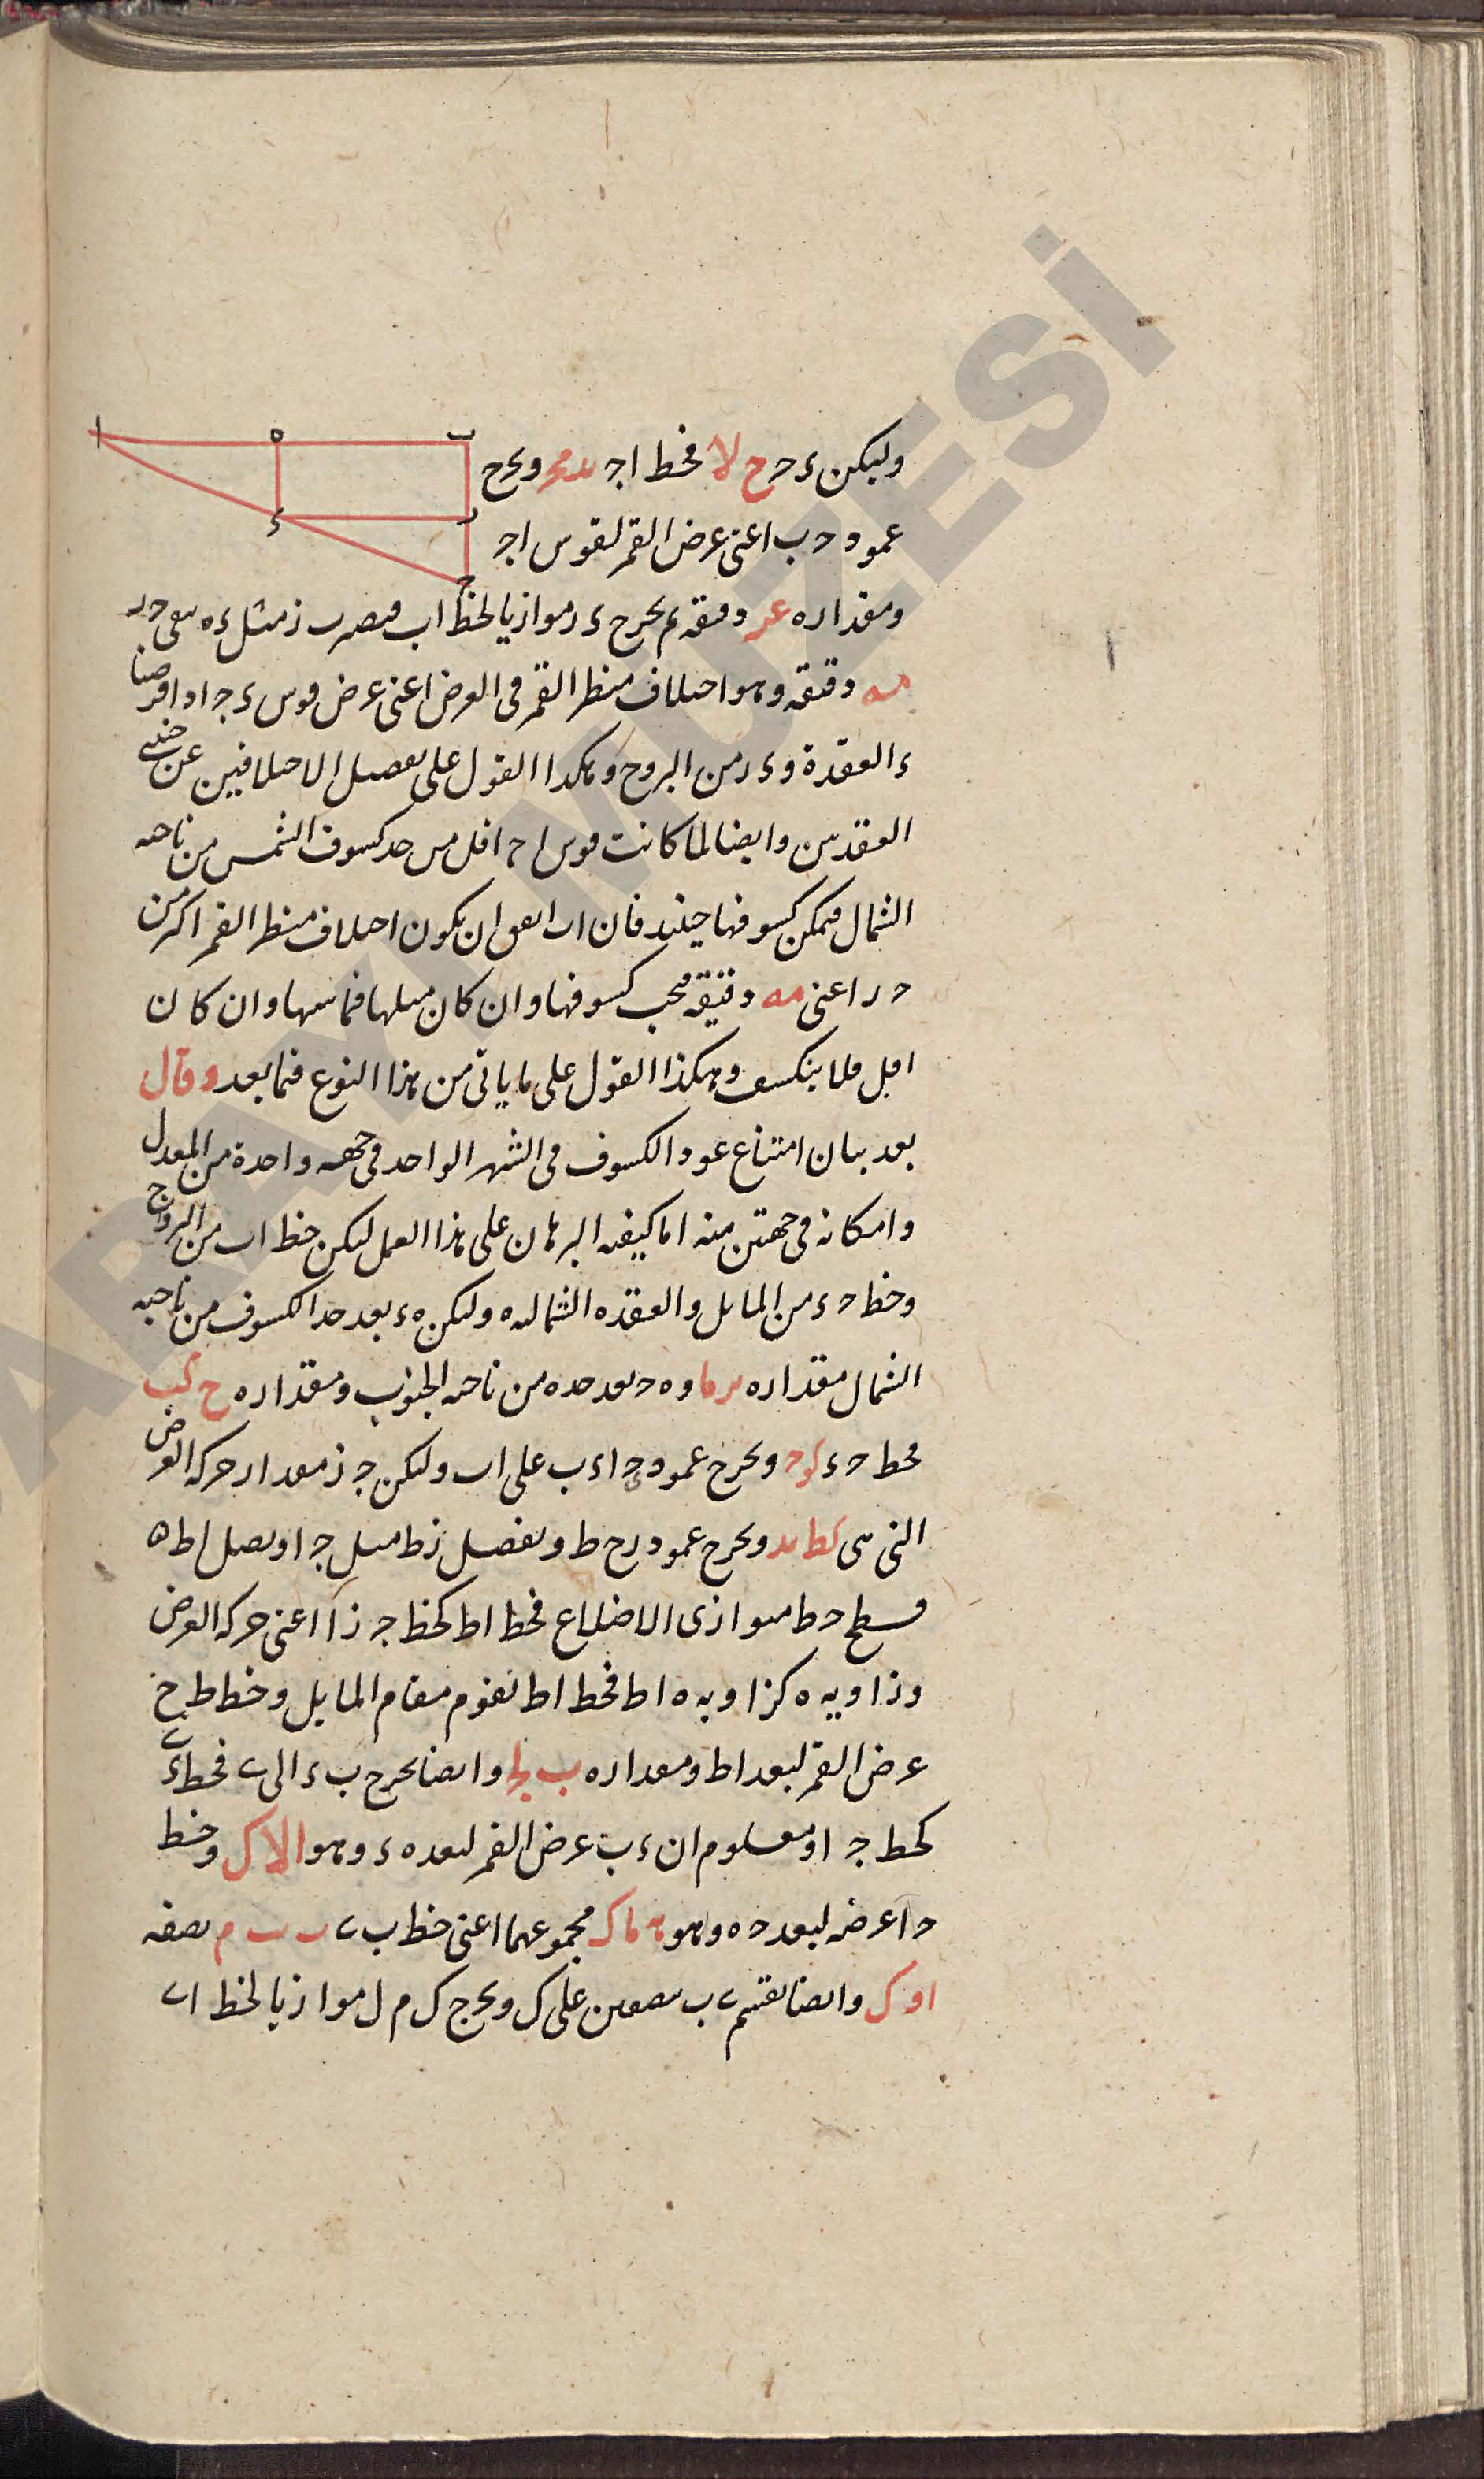 وليكن ء ح ح لا فخط اجـ ويخرج
عمود ح ب اعنى عرض القمر لقوس اجـ
ومقداره عر دقيقة ثم يخرج ء ر موازيا لخط اب فيصير ب ز مثل ء ه يبقى ح ر
مه دقيقه وهو اختلاف منظر القمر فى العرض اعنى عرض قوس ء جـ اذا فرضنا
ء العقدة و ء ر من البروج وهكذا القول على تفصيل الاختلافين عن جنبتى
العقدتين وايضا لما كانت قوس ا ح اقل من حد كسوف الشمس من ناحيه
الشمال فيمكن كسوفها حينئذ فان اتفق ان يكون اختلاف منظر القمر اكثر من
ح ر اعنى مه دقيقه فيجب كسوفها وان كان مثلها فماسها وان كان
اقل فلا ينكسف وهكذا القول على ما ياتى من هذا النوع فيما بعد وقال
بعد بيان امتناع عود الكسوف فى الشهر الواحد فى جهه واحدة من المعدل
وامكانه فى جهتين منه اما كيفيه البرهان على هذا العمل ليكن خط اب من البروج
وخط ح ء من المايل والعقده الشماليه ه وليكن ه ء بعد حد الكسوف من ناحيه
الشمال مقداره و ه ح بعد حده من ناحيه الجنوب ومقداره ح كب
فخط ح ء ويخرج عمود جـ ا ء ب على اب وليكن جـ ز مقدار حركه العرض
التى هى كط يد ويخرج عمود ز ح ط ونفصل ز ط مثل جـ ا ونصل اط ه
فسطح ح ط متوازى الاضلاع فخط اط كخط جـ ز اعنى حركه العرض
وزاويه ه كزاويه ه اط فخط اط نقوم مقام المايل وخط ط ح
عرض القمر لبعد اط ومقداره ب لح وايضا يخرج ب ء الى ى فخط ى ء
كخط جـ ا ومعلوم ان ء ب عرض القمر لبعد ه ء وهو ا لا ك وخط
ح ا عرضه لبعد ح ه وهو ه ما ك مجموعهما اعنى خط ب ى ب ب م نصفه
ا و ك وايضا نقسم ى ب بنصفين على ك ويخرج ك م ل موازيا لخط اى
ا
ه
ب
ء
ر
ج